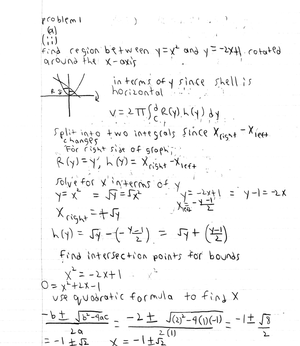 problem 1
(a)
(ii)
find region between y=x² and y=-2x+1 rotated
around the x-axis
in terms of y since shell is
horizontal
V = 2π∫ R(y) h(y) dy
Split into two integrals since x right - x left
changes
For right side of graph,
R(y) = y, h(y) = x right - x left
Solve for x in terms of y
y=x² = √y = √x²
y = -2x+1 = y-1 = -2x
x left = -(y-1)/2
x right = +√y
h(y) = √y - (-(y-1)/2) = √y + (y-1)/2
Find intersection points for bounds
x² = -2x+1
0 = x²+2x-1
use quadratic formula to find x
(-b ± √(b²-4ac))/2a = (-2 ± √((2)²-4(1)(-1)))/2(1) = -1 ± √8/2
= -1 ± √2 x = -1 ± √2